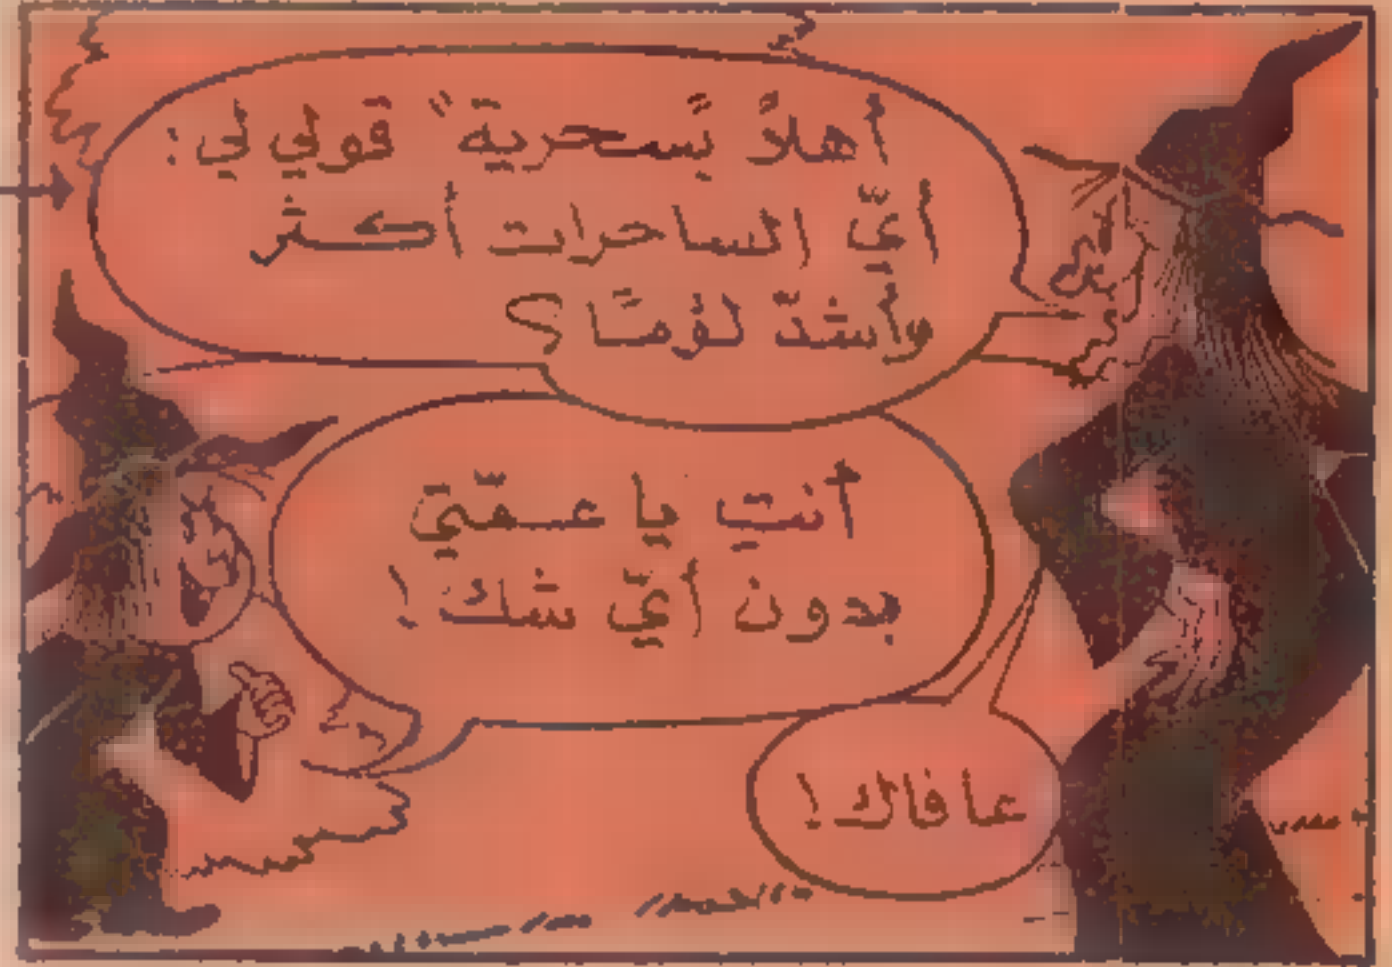 أهلاً "بسحرية" قولي لي:
أيّ الساحرات أكثر
وأشدّ لؤمًا؟
أنتِ يا عمّتي
بدون أيّ شك!
عافاك!